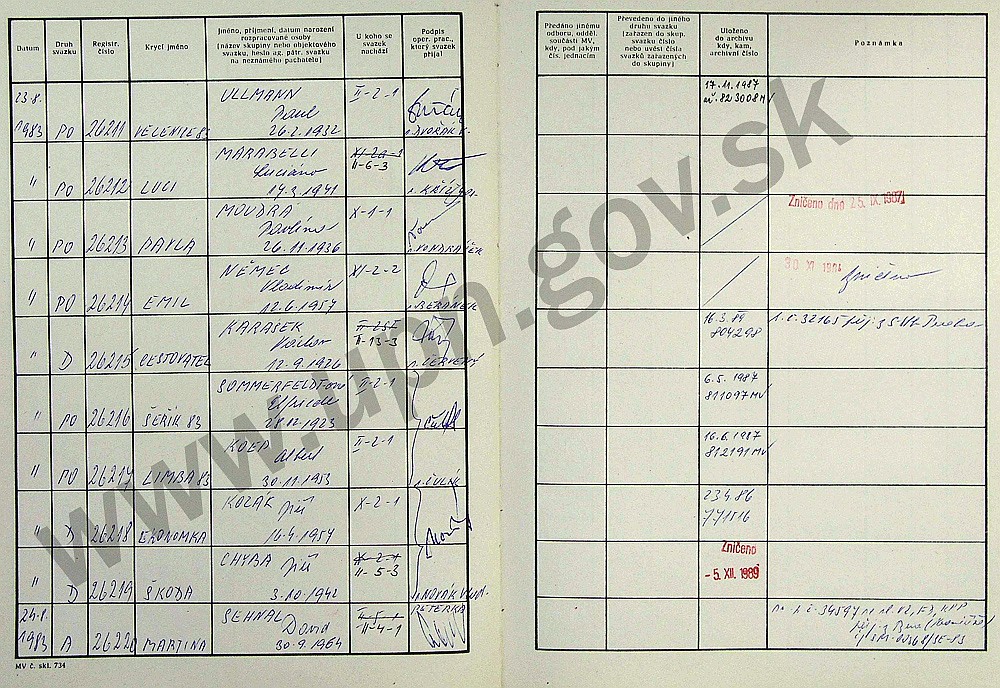 Datum
Druh svazku
Registr. číslo
Krycí jméno
Jméno, příjmení, datum narození
rozpracované osoby
(název skupiny nebo objektového
svazku, heslo ag. pátr. svazku
na neznámého pachatele)
U koho se
svazek
nachází
Podpis
oper. prac.,
který svazek
přijal
Předáno jinému
odboru, odděl.
součásti MV,
kdy, pod jakým
čís. jednacím
Převedeno do jiného
druhu svazku
(zařazen do skup.
svazku číslo
nebo uvést čísla
svazků zařazených
do skupiny)
Uloženo
do archivu
kdy, kam,
archivní číslo
Poznámka
23.8.
1983 PO 26211 VELENICE 83
ULLMANN
Paul
26.2.1932
II-2-1
17.11.1987
823008 MV
" PO 26212 LUCI
MARABELLI
Luciano
14.3.1941
II-6-3
" PO 26213 PAVLA
MOUDRÁ
Pavlína
26.11.1936
X-1-1
VONDRÁČEK
Zničeno dne 25. IX. 1987
" PO 26214 EMIL
NĚMEC
Vladimír
12.6.1957
XI-2-2
BERÁNEK
30 XI
" D 26215 CESTOVATEL
KARASEK
Václav
12.9.1926
II-13-3
ČERVENÝ
804298
" PO 26216 ŠEŘÍK 83
II-2-1
6.5.1987
811097 MV
" PO 26217 LIMBA 83
KOEP
Albert
30.11.1953
II-2-1
16.6.1987
812191 MV
" D 26218 EKONOMKA
KOZÁK Jiří
16.4.1954
X-2-1
23.4.86
771516
" D 26219 ŠKODA
CHYBA Jiří
3.10.1942
X-2-1
II-5-3
NOVÁK
Zničeno
- 5. XII. 1989
24.8.
1983 A 26220 MARTINA
SEHNAL
David
30.9.1964
II-5-1
II-4-1
PETERKA
MV č. skl. 734
www.upn.gov.sk